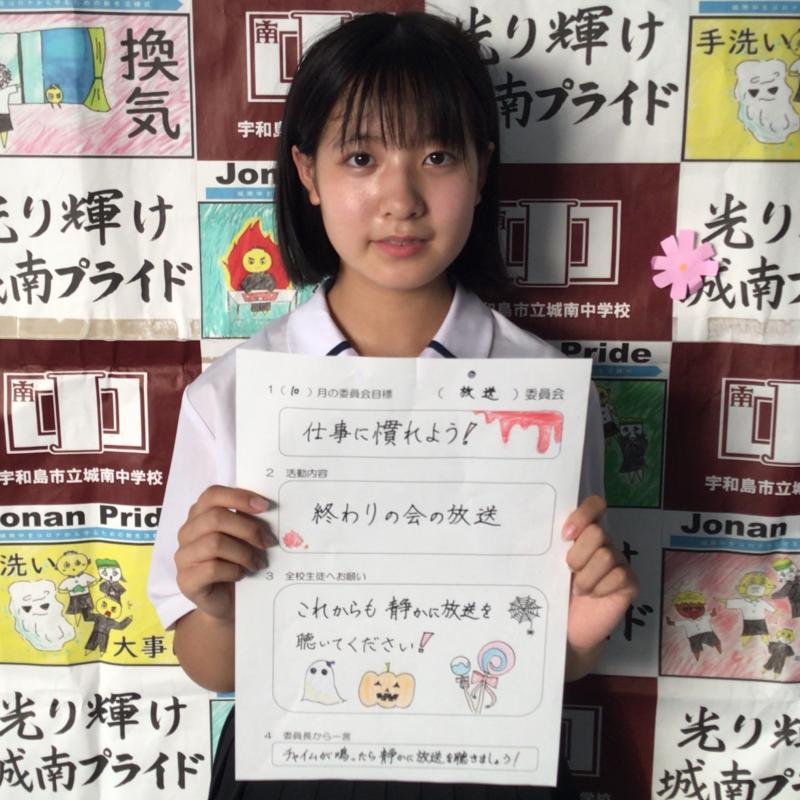 換気
南
宇和島
光り輝け
南プライド
手洗い
Jon
光り輝け
城南プライド
宇和島市立城南中学校
光り
城南プライド
Pride
南
宇和島市立城南中学校
宇和島市立城南
Jonan Prid
Jonan
洗い
大事
光り輝け
城南プライド
光り輝け
城南プライド
1 ( 10 ) 月の委員会目標 ( 放送 ) 委員会
仕事に慣れよう!
2 活動内容
終わりの会の放送
3 全校生徒へお願い
これからも静かに放送を
聴いてください!
4 委員長から一言
チャイムが鳴ったら静かに放送を聴きましょう!